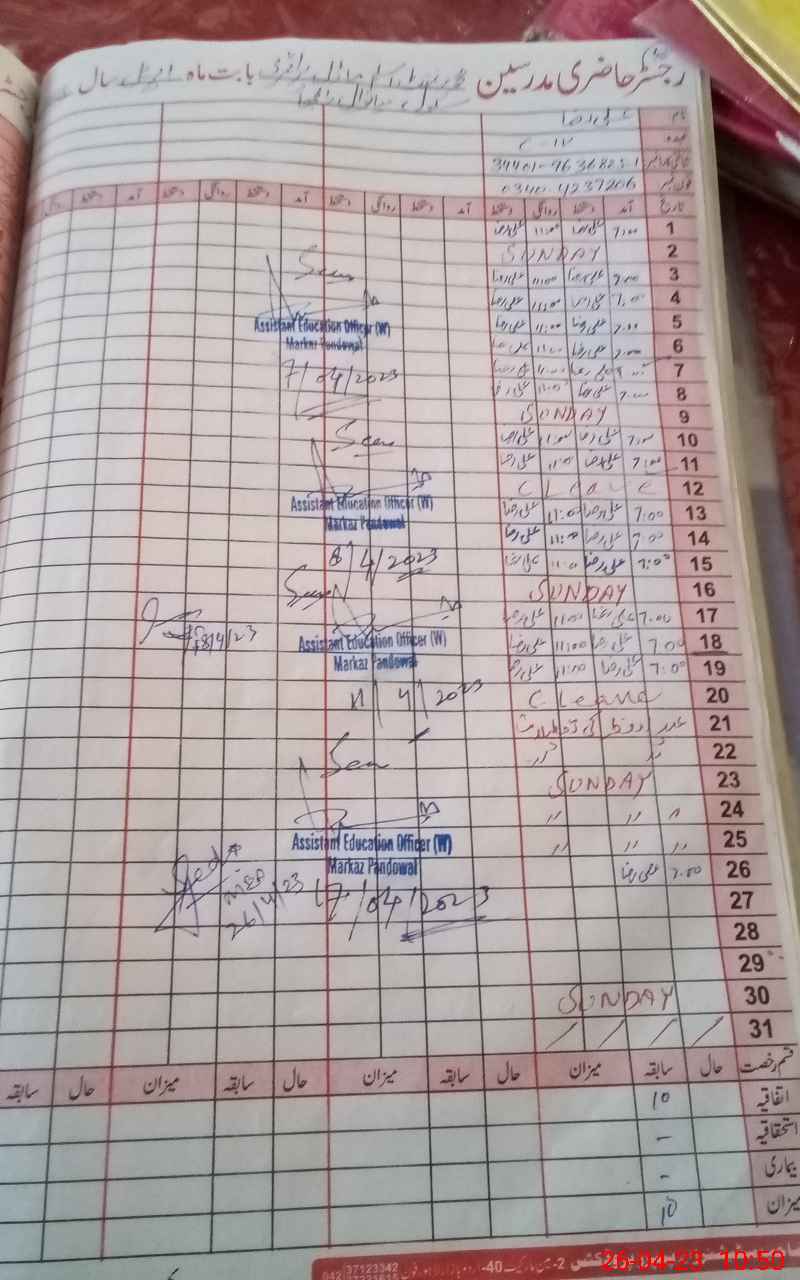 رجسٹر حاضری مدرسین بابت ماہ اپریل سال
نام علی رضا
عہدہ C-IV
شناختی کارڈ نمبر 34401-9636823-1
فون نمبر 0340-4237206
تاریخ آمد دستخط روانگی دستخط آمد دستخط روانگی دستخط آمد دستخط روانگی دستخط آمد دستخط
1 7:00 علی رضا 11:00 علی رضا
2 SUNDAY
3 7:00 علی رضا 11:00 علی رضا
4 7:00 علی رضا 11:00 علی رضا
5 7:00 علی رضا 11:00 علی رضا
6 7:00 علی رضا 11:00 علی رضا
7 علی رضا 11:00 علی رضا
8 7:00 علی رضا 11:00 علی رضا
9 SUNDAY
10 7:00 علی رضا 11:00 علی رضا
11 7:00 علی رضا 11:00 علی رضا
12 C Leave
13 7:00 علی رضا 11:00 علی رضا
14 7:00 علی رضا 11:00 علی رضا
15 7:00 علی رضا 11:00 علی رضا
16 SUNDAY
17 7:00 علی رضا 11:00 علی رضا
18 7:00 علی رضا 11:00 علی رضا
19 7:00 علی رضا 11:00 علی رضا
20 C Leave
21 عید الفطر کی تعطیلات
22
23 SUNDAY
24 〃 〃 〃
25 〃 〃 〃
26 7:00 علی رضا
27
28
29
30 SUNDAY
31 / / / /
Seen
Assistant Education Officer (W)
Markaz Pandowal
7/04/2023
Seen
Assistant Education Officer (W)
Markaz Pandowal
8/4/2023
Seen
Assistant Education Officer (W)
Markaz Pandowal
11/4/2023
18/4/23
Seen
Assistant Education Officer (W)
Markaz Pandowal
17/04/2023
26/4/23
قسم رخصت حال سابقہ میزان حال سابقہ میزان حال سابقہ میزان حال سابقہ
اتفاقیہ 10
استحقاقیہ -
بیماری -
میزان 10
37123342
26-04-23 10:50